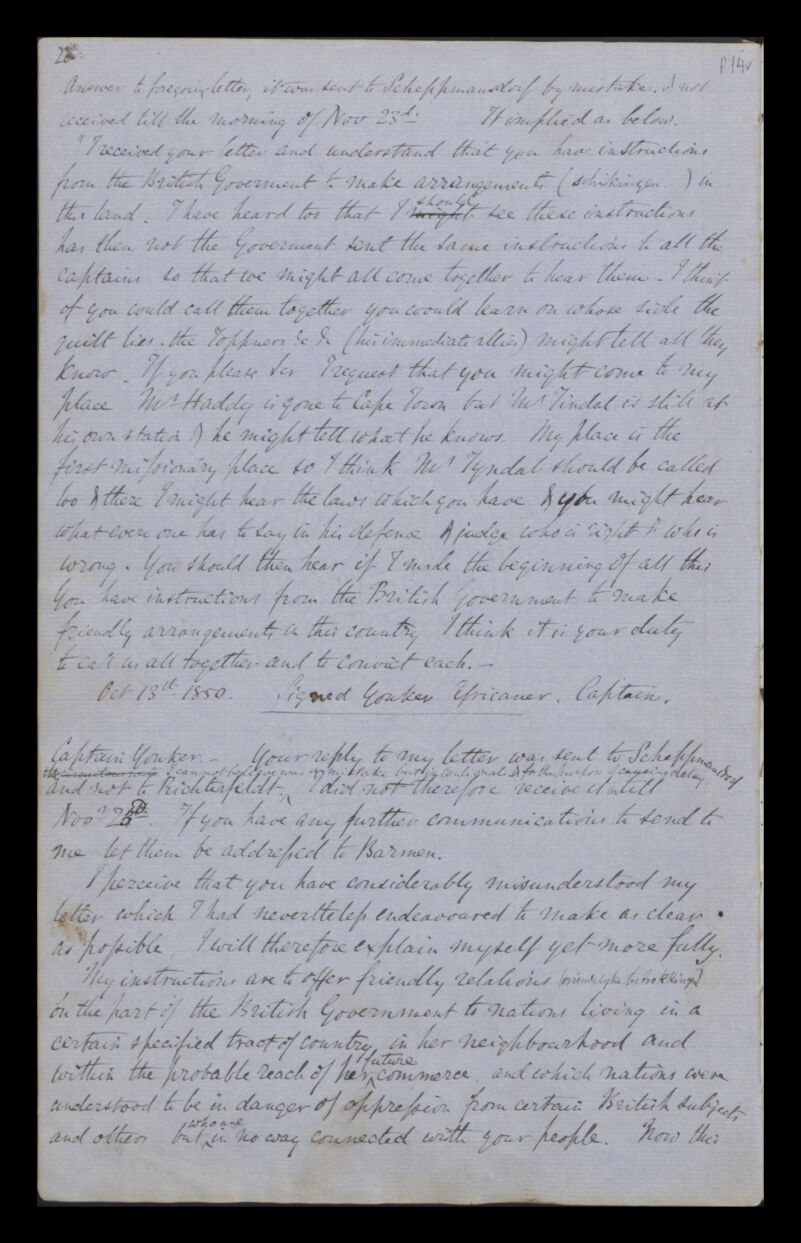 f 14v
Answer to foregoing letter, it was sent to Scheppmansdorf by mistake. & not
received till the morning of Nov 23d. It implied as below.
"I received your letter and understand that you have instructions
from the British Goverment to make arrangements (schikingen ) in
this land. I have heard too that I might should see these instructions
has then not the Goverment sent the same instructions to all the
captains so that we might all come together to hear them - I think
if you could call them together you would learn on whose side the
guilt lies. the Toppners &c &c (his immediate allies) might tell all they
know. If you please Sir I request that you might come to my
place Mr Haddy is gone to Cape Town but Mr Tindal is still at
his own station & he might tell what he knows. My place is the
first missionary place so I think Mr Tyndal should be called
too & there I might hear the laws which you have & you might hear
what every one has to say in his defence & judge who is right & who is
wrong. You should then hear if I made the beginning of all this
You have instructions from the British Government to make
friendly arrangements in this country I think it is your duty
to call us all together and to convict each. -
Oct 13th 1850. Signed Yonker Africaner. Captain.
Captain Yonker. - Your reply to my letter was sent to Scheppmansdorf
I cannot believe was by mistake but by contignal & for the purpose of causing delay.
and not to Richterfeldt, I did not therefore receive it till
Novr 23D. If you have any further communications to send to
me let them be addressed to Barmen.
I perceive that you have considerably misunderstood my
letter which I had nevertheless endeavoured to make as clear
as possible, I will therefore explain myself yet more fully.
My instructions are to offer friendly relations (vriendlyke betrekkings)
on the part of the British Government to nations living in a
certain specified tract of country in her neighbourhood and
within the probable reach of her future commerce, and which nations were
understood to be in danger of oppression from certain British subjects
and others but who are in no way connected with your people. Now this